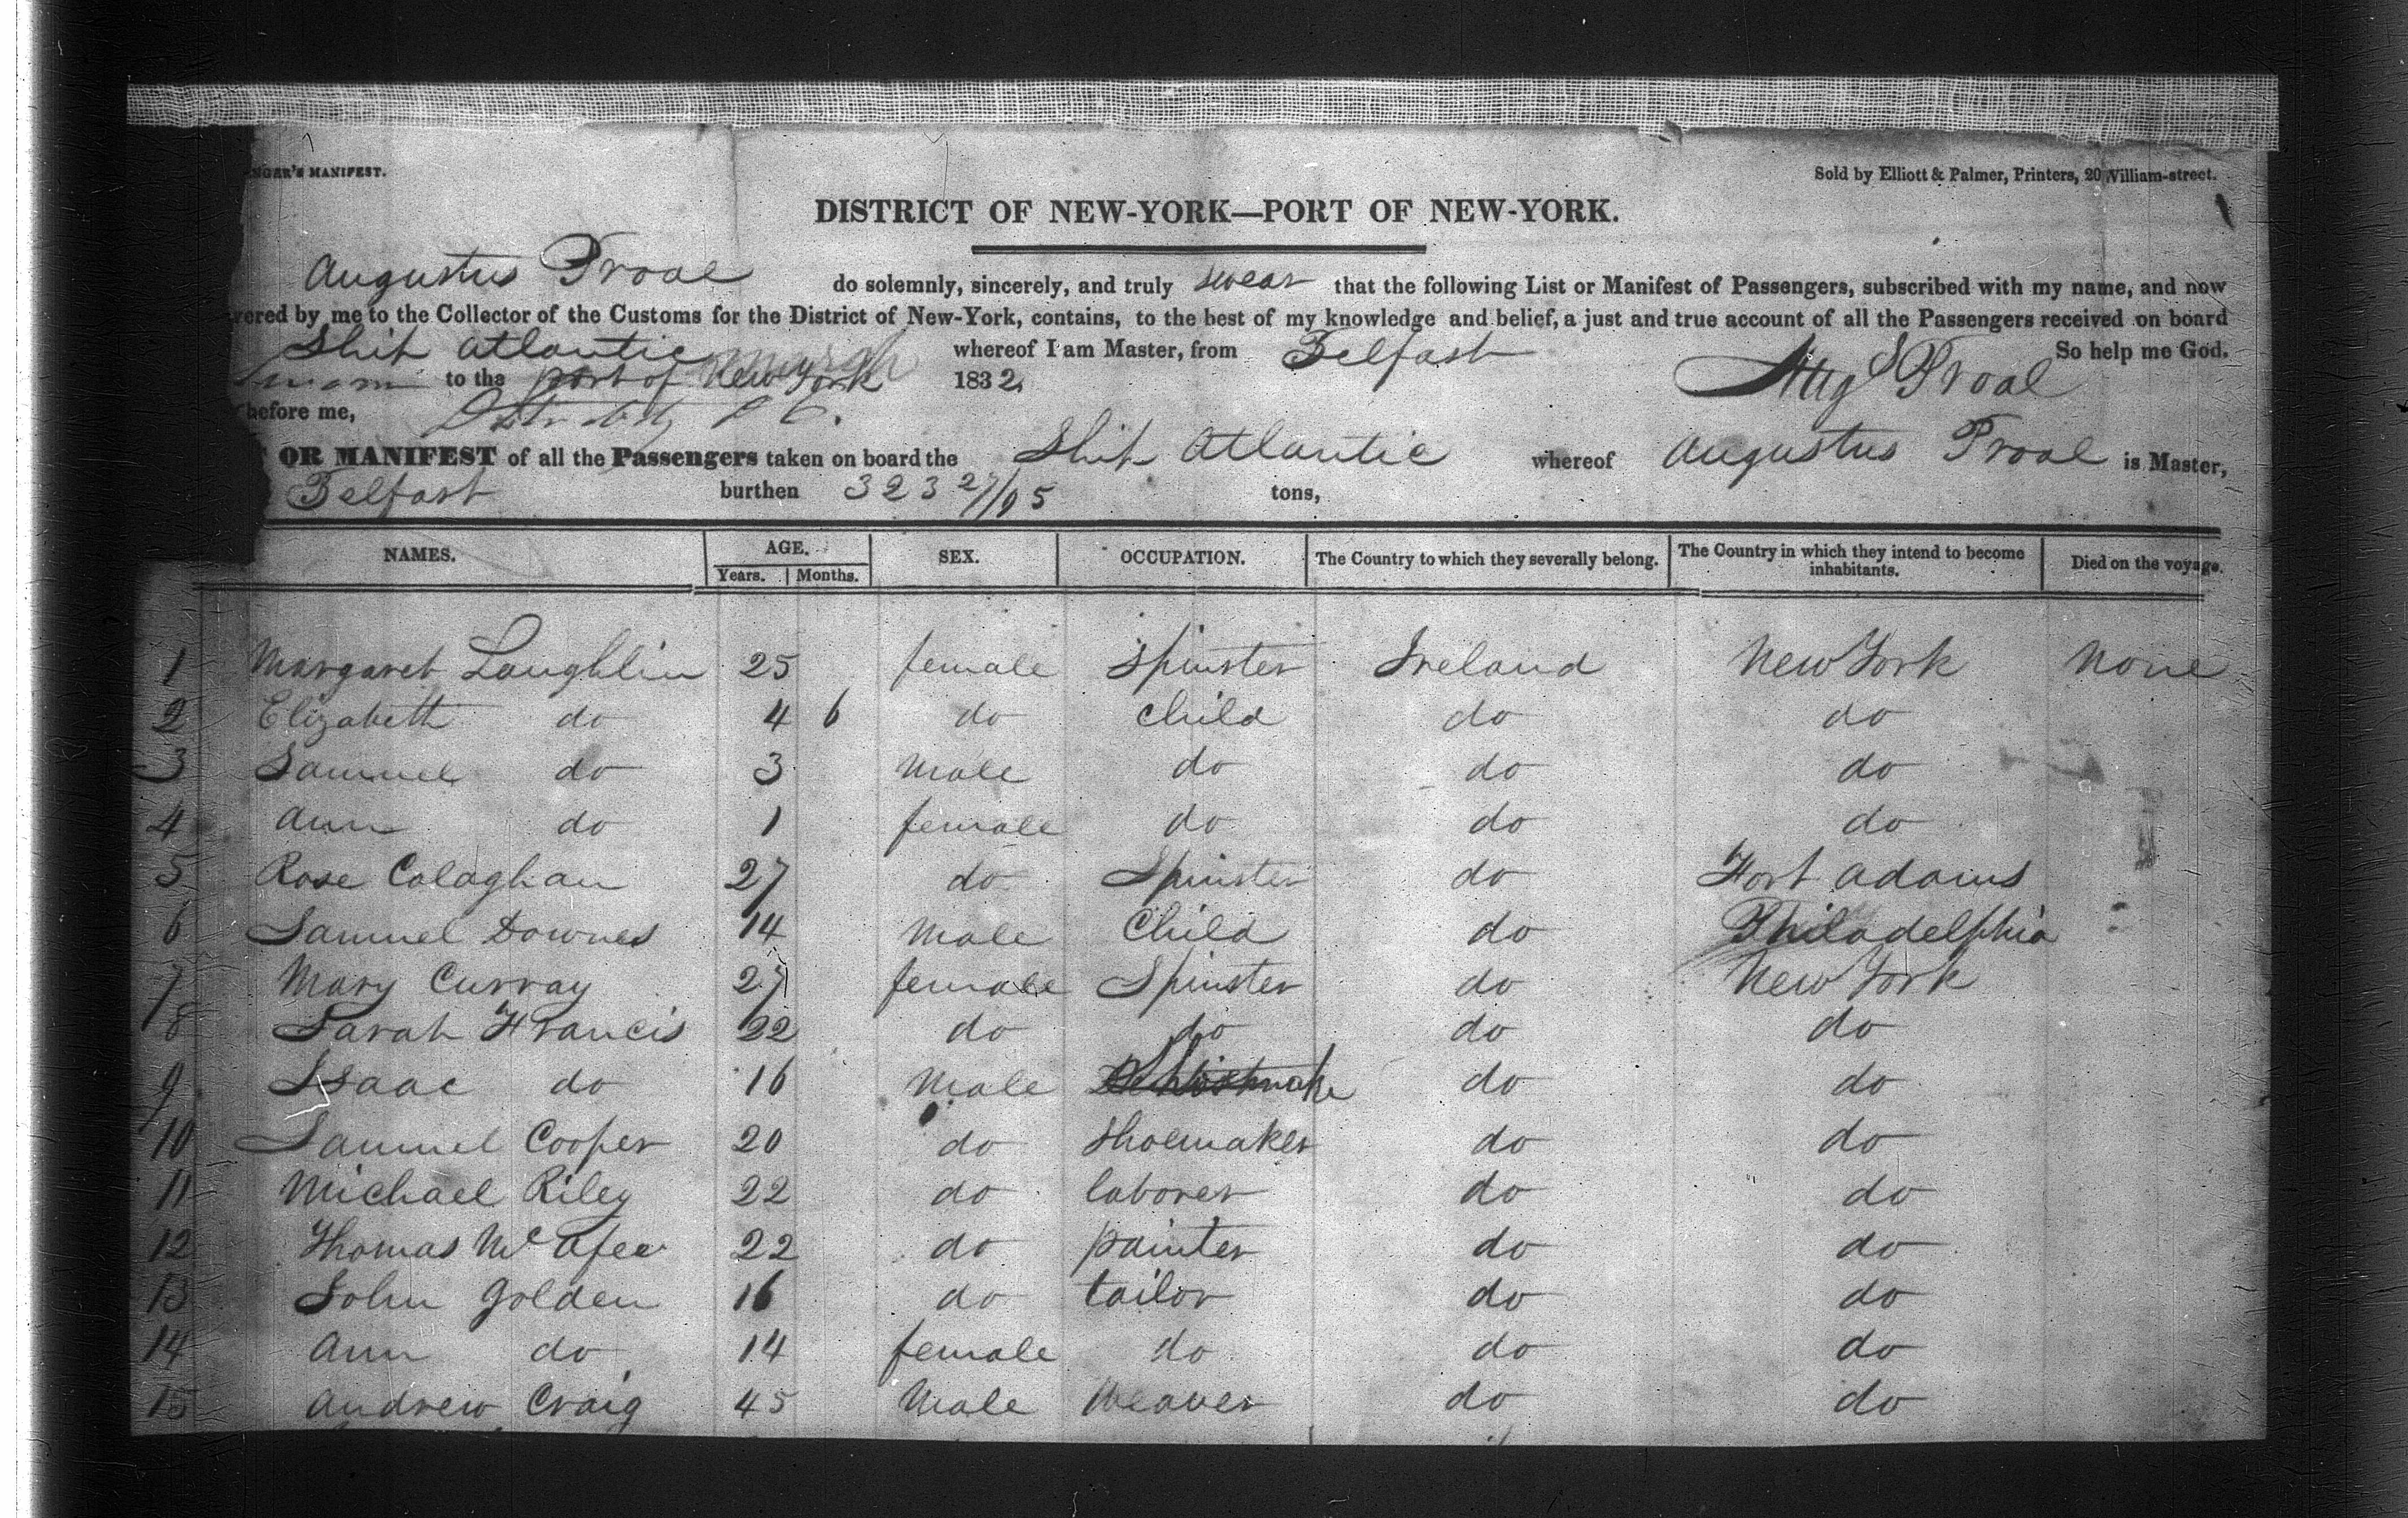 NGER'S MANIFEST.
Sold by Elliott & Palmer, Printers, 20 William-street.
DISTRICT OF NEW-YORK—PORT OF NEW-YORK.
Augustus Proal do solemnly, sincerely, and truly swear that the following List or Manifest of Passengers, subscribed with my name, and now
vered by me to the Collector of the Customs for the District of New-York, contains, to the best of my knowledge and belief, a just and true account of all the Passengers received on board
Ship Atlantic whereof I am Master, from Belfast So help me God.
to the port of New York 1832 Aug S Proal
before me,
OR MANIFEST of all the Passengers taken on board the Ship Atlantic whereof Augustus Proal is Master,
Belfast burthen 323 27/95 tons,
NAMES. AGE. SEX. OCCUPATION. The Country to which they severally belong. The Country in which they intend to become inhabitants. Died on the voyage.
Years. Months.
1 Margaret Laughlin 25 female Spinster Ireland New York None
2 Elizabeth do 4 6 do Child do do
3 Samuel do 3 Male do do do
4 Ann do 1 female do do do
5 Rose Colaghan 27 do Spinster do Fort Adams
6 Samuel Downes 14 Male Child do Philadelphia
7 Mary Curray 27 female Spinster do New York
8 Sarah Francis 22 do do do do
9 Isaac do 16 Male do do
10 Samuel Cooper 20 do Shoemaker do do
11 Michael Riley 22 do laborer do do
12 Thomas Mc Afee 22 do painter do do
13 John Golden 16 do tailor do do
14 Ann do 14 female do do do
15 Andrew Craig 45 Male Weaver do do